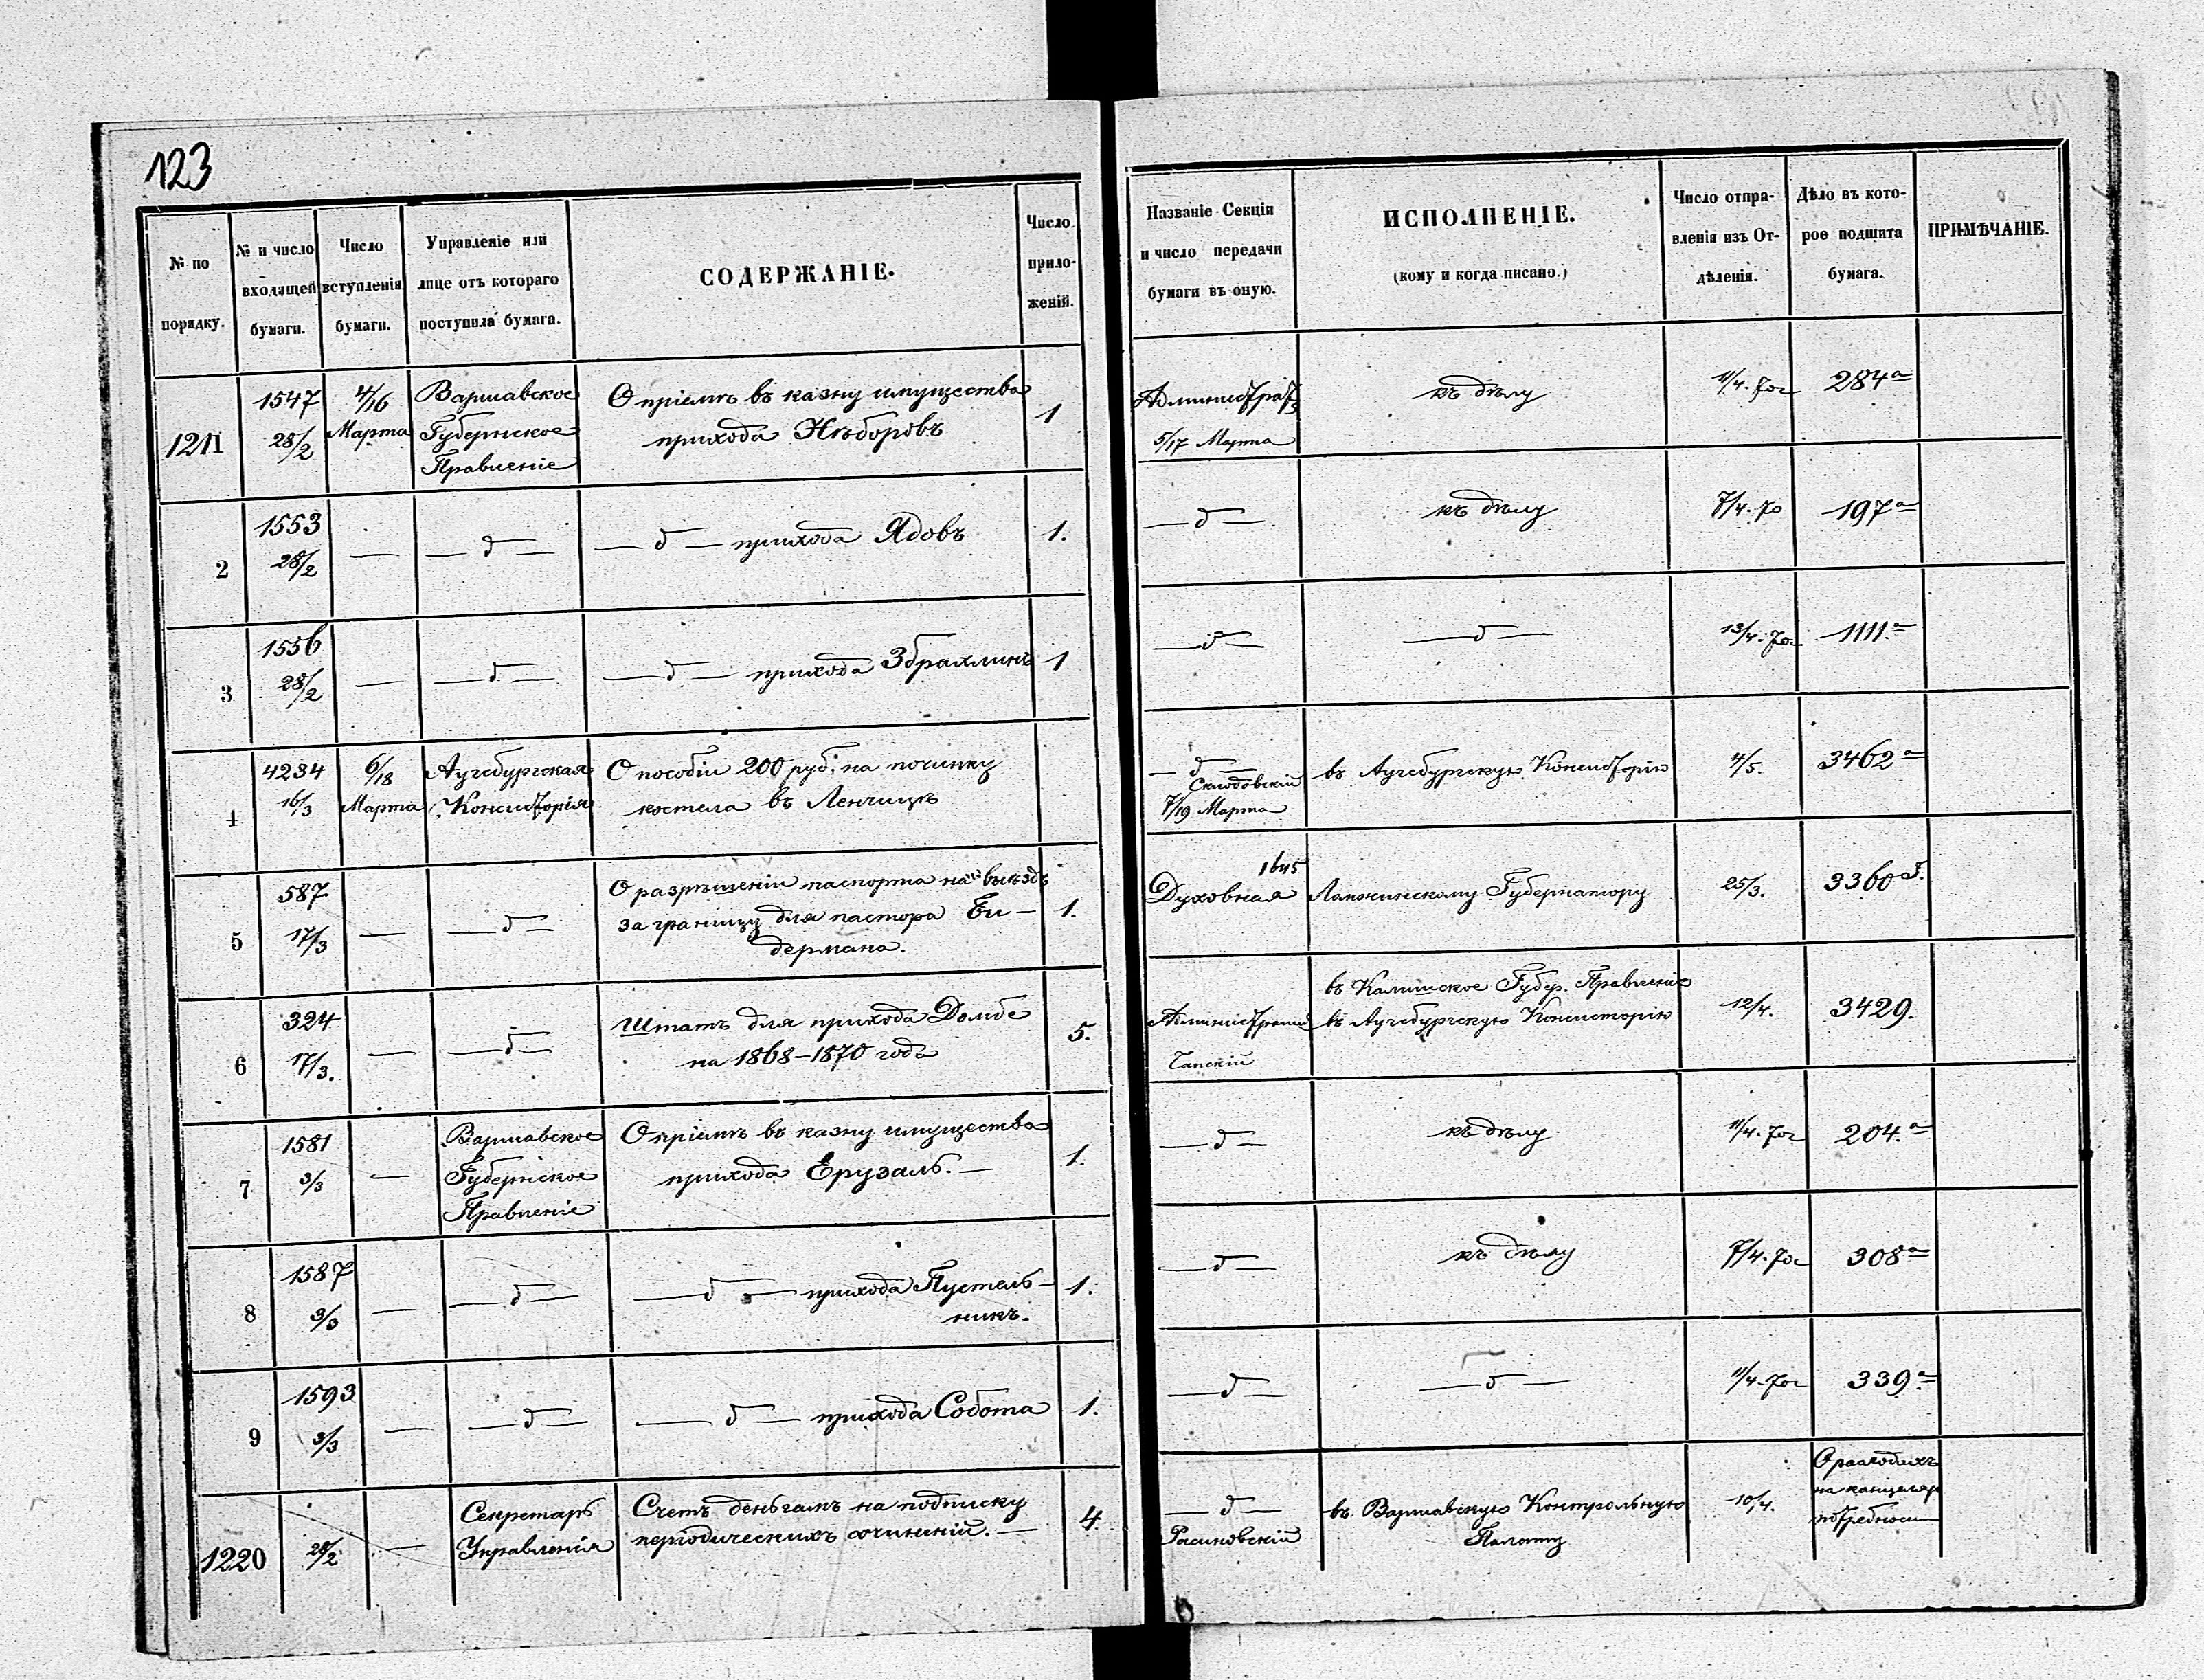 123
№ по порядку.
№ и число входящей бумаги.
Число вступленія бумаги.
Управленіе или лице отъ котораго поступила бумага.
СОДЕРЖАНІЕ.
Число приложеній.
Названіе Секціи и число передачи бумаги въ оную.
ИСПОЛНЕНІЕ.
(кому и когда писано.)
Число отпра-
вленія изъ От-
дѣленія.
Дѣло въ кото-
рое подшита
бумага.
ПРИМѢЧАНІЕ.
1211
1547
28/2
4/16
Марта
Варшавское
Губернское
Правленіе
О пріемѣ въ казну имущества
прихода Нѣборовъ
1
5/17 Марта
къ дѣлу
11/4. 70г
284а
2
1553
28/2
— д —
— д — прихода Ядовъ
1.
— д —
къ дѣлу
7/4. 70
197а
3
1556
28/2
— д —
— д — прихода Збрахлинъ
1
— д —
— д —
13/4. 70г
1111а
4
4234
16/3
6/18
Марта
Аугсбургская
Консисторія
О пособіи 200 руб. на починку
костела въ Ленчицѣ
— д —
Склодовскій
7/19 Марта
въ Аугсбургскую Консисторію
4/5.
3462а
5
587
17/3
—
— д —
О разрѣшеніи паспорта на выѣздъ
за границу для пастора Би-
дермана.
1.
1645
Духовная
Ломжинскому Губернатору
25/3.
3360
6
324
17/3.
—
— д —
Штатъ для прихода Домбе
на 1868-1870 года
5.
Чапскій
въ Калишское Губер. Правленіе
въ Аугсбургскую Консисторію
12/4.
3429.
7
1581
3/3
—
Варшавское
Губернское
Правленіе
О пріемѣ въ казну имущества
прихода Ерузаль. —
1.
— д —
къ дѣлу
11/4. 70г
204.а
8
1587
3/3
—
— д —
— д — прихода Пустель-
никъ.
1.
— д —
къ дѣлу
7/4. 70г
308а
9
1593
3/3
—
— д —
— д — прихода Собота
1.
— д —
— д —
11/4. 70г
339.а
1220
28/2
—
Секретарь
Управленія
Счетъ деньгамъ на подписку
періодическихъ сочиненій. —
4.
— д —
въ Варшавскую Контрольную
Палату
10/4.
О расходахъ
на канцеляр
потребности